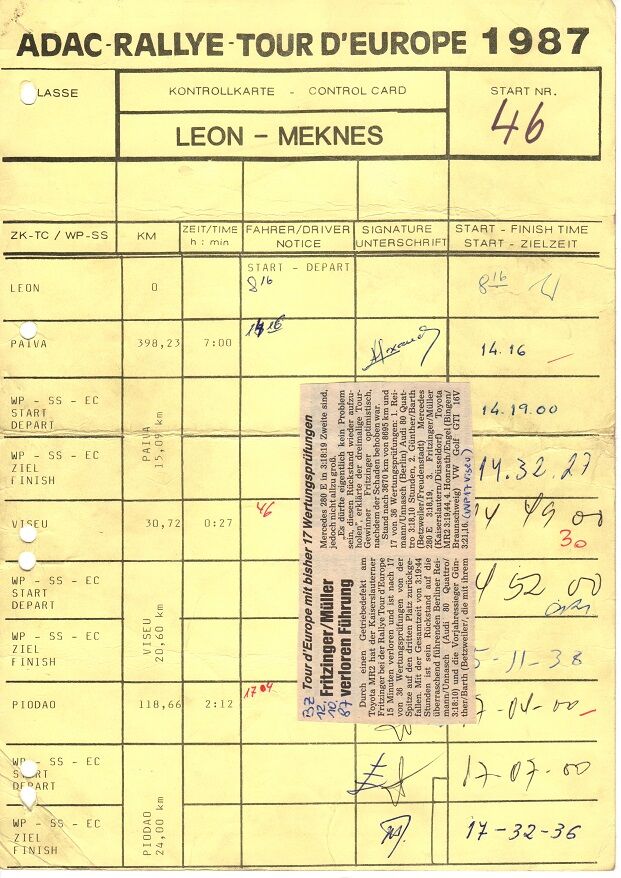 ADAC-RALLYE-TOUR D'EUROPE 1987
LASSE
KONTROLLKARTE - CONTROL CARD
START NR.
LEON - MEKNES
46
ZK-TC / WP-SS
KM
ZEIT/TIME
h : min
FAHRER/DRIVER
NOTICE
SIGNATURE
UNTERSCHRIFT
START - FINISH TIME
START - ZIELZEIT
START - DEPART
LEON
0
8 16
8 16
PAIVA
398,23
7:00
14 16
14.16
WP - SS - EC
START
DEPART
PAIVA
15,09 km
14.19.00
WP - SS - EC
ZIEL
FINISH
14.32.27
VISEU
30,72
0:27
46
14 49 00
30
WP - SS - EC
START
DEPART
VISEU
20,60 km
4 52 00
WP - SS - EC
ZIEL
FINISH
5-11-38
PIODAO
118,66
2:12
17 04
7-04-00
WP - SS - EC
START
DEPART
PIODAO
24,00 km
17-07-00
WP - SS - EC
ZIEL
FINISH
17-32-36
BZ
12.
10.
87
Tour d'Europe mit bisher 17 Wertungsprüfungen
Fritzinger/Müller
verloren Führung
Durch einen Getriebedefekt am
Toyota MR2 hat der Kaiserslauterner
Fritzinger bei der Rallye Tour d'Europe
15 Minuten verloren und ist nach 17
von 36 Wertungsprüfungen von der
Spitze auf den dritten Platz zurückge-
fallen. Mit der Gesamtzeit von 3:19:44
Stunden ist sein Rückstand auf die
überraschend führenden Berliner Rei-
mann/Unnasch (Audi 80 Quattro/
3:18:10) und die Vorjahressieger Gün-
ther/Barth (Betzweiler/, die mit ihrem
Mercedes 280 E in 3:18:19 Zweite sind,
jedoch nicht allzu groß.
„Es dürfte eigentlich kein Problem
sein, diesen Rückstand wieder aufzu-
holen", erklärte der dreimalige Tour-
Gewinner Fritzinger optimistisch,
nachdem der Schaden behoben war.
Stand nach 3670 km von 8095 km und
17 von 36 Wertungsprüfungen: 1. Rei-
mann/Unnasch (Berlin) Audi 80 Quat-
tro 3:18,10 Stunden, 2. Günther/Barth
(Betzweiler/Freudenstadt) Mercedes
280 E 3:18,19, 3. Fritzinger/Müller
(Kaiserslautern/Düsseldorf) Toyota
MR2 3:19,44, 4. Honrath/Engel (Bingen/
Braunschweig) VW Golf GTI 16V
3:21,16.
(WP17 Viseu)